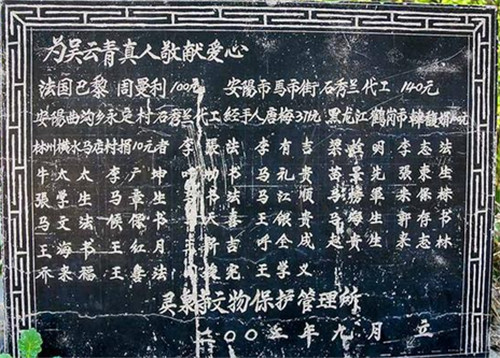 为吴云青真人敬献爱心
法国巴黎 周曼利100元 安阳市马市街石秀兰代工 140元
安阳曲沟乡永定村石秀兰代工 经手人唐梅371元 黑龙江鹤岗市
林州横水马店村捐10元者 李 張法 李有吉 梁 明 李志法
牛太太 李广坤 书 马礼贵 苗景先 張東生
張学生 马章生 书 马江顺 马榜军 宋保栋
马文法 候保书 喜 王银贵 马海生 郭存书
王海书 王红月 王新吉 呼全成 赵贵生 来志林
乔来福 王鲁法 宪 王学义
灵泉寺文物保护管理所
二〇〇 年九月 立